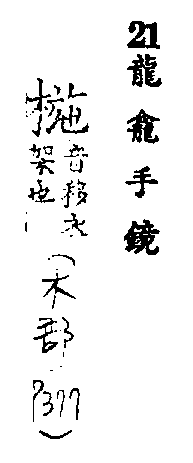 21龍龕手鏡
椸音移衣
架也
(木部
P377)